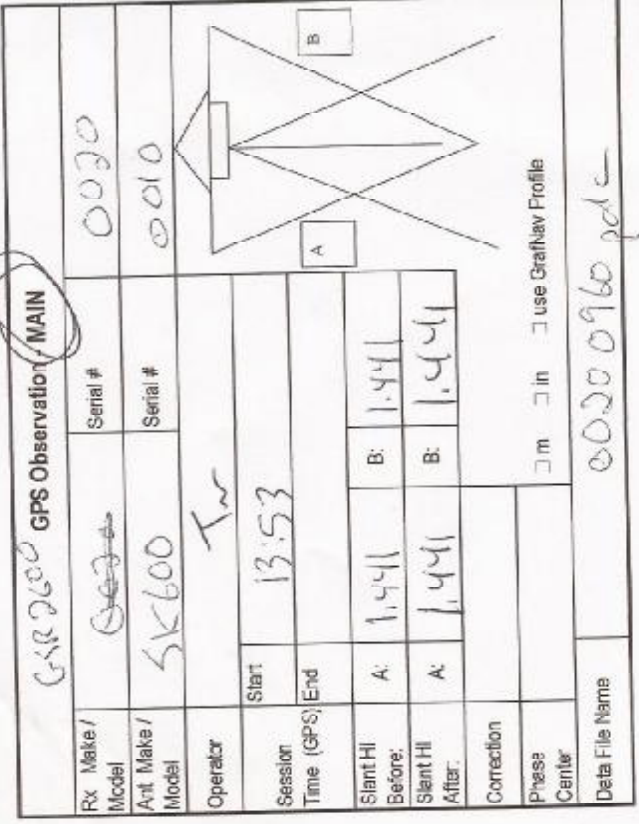 GSR2600 GPS Observation - MAIN
Rx Make / Model Serial # 0020
Ant Make / Model SK600 Serial # 0010
Operator
Session Time (GPS) Start 13:53
End
Slant HI Before: A: 1.441 B: 1.441
Slant HI After: A: 1.441 B: 1.441
A B
Correction
Phase Center □ m □ in □ use GrafNav Profile
Data File Name 00200960 pdc